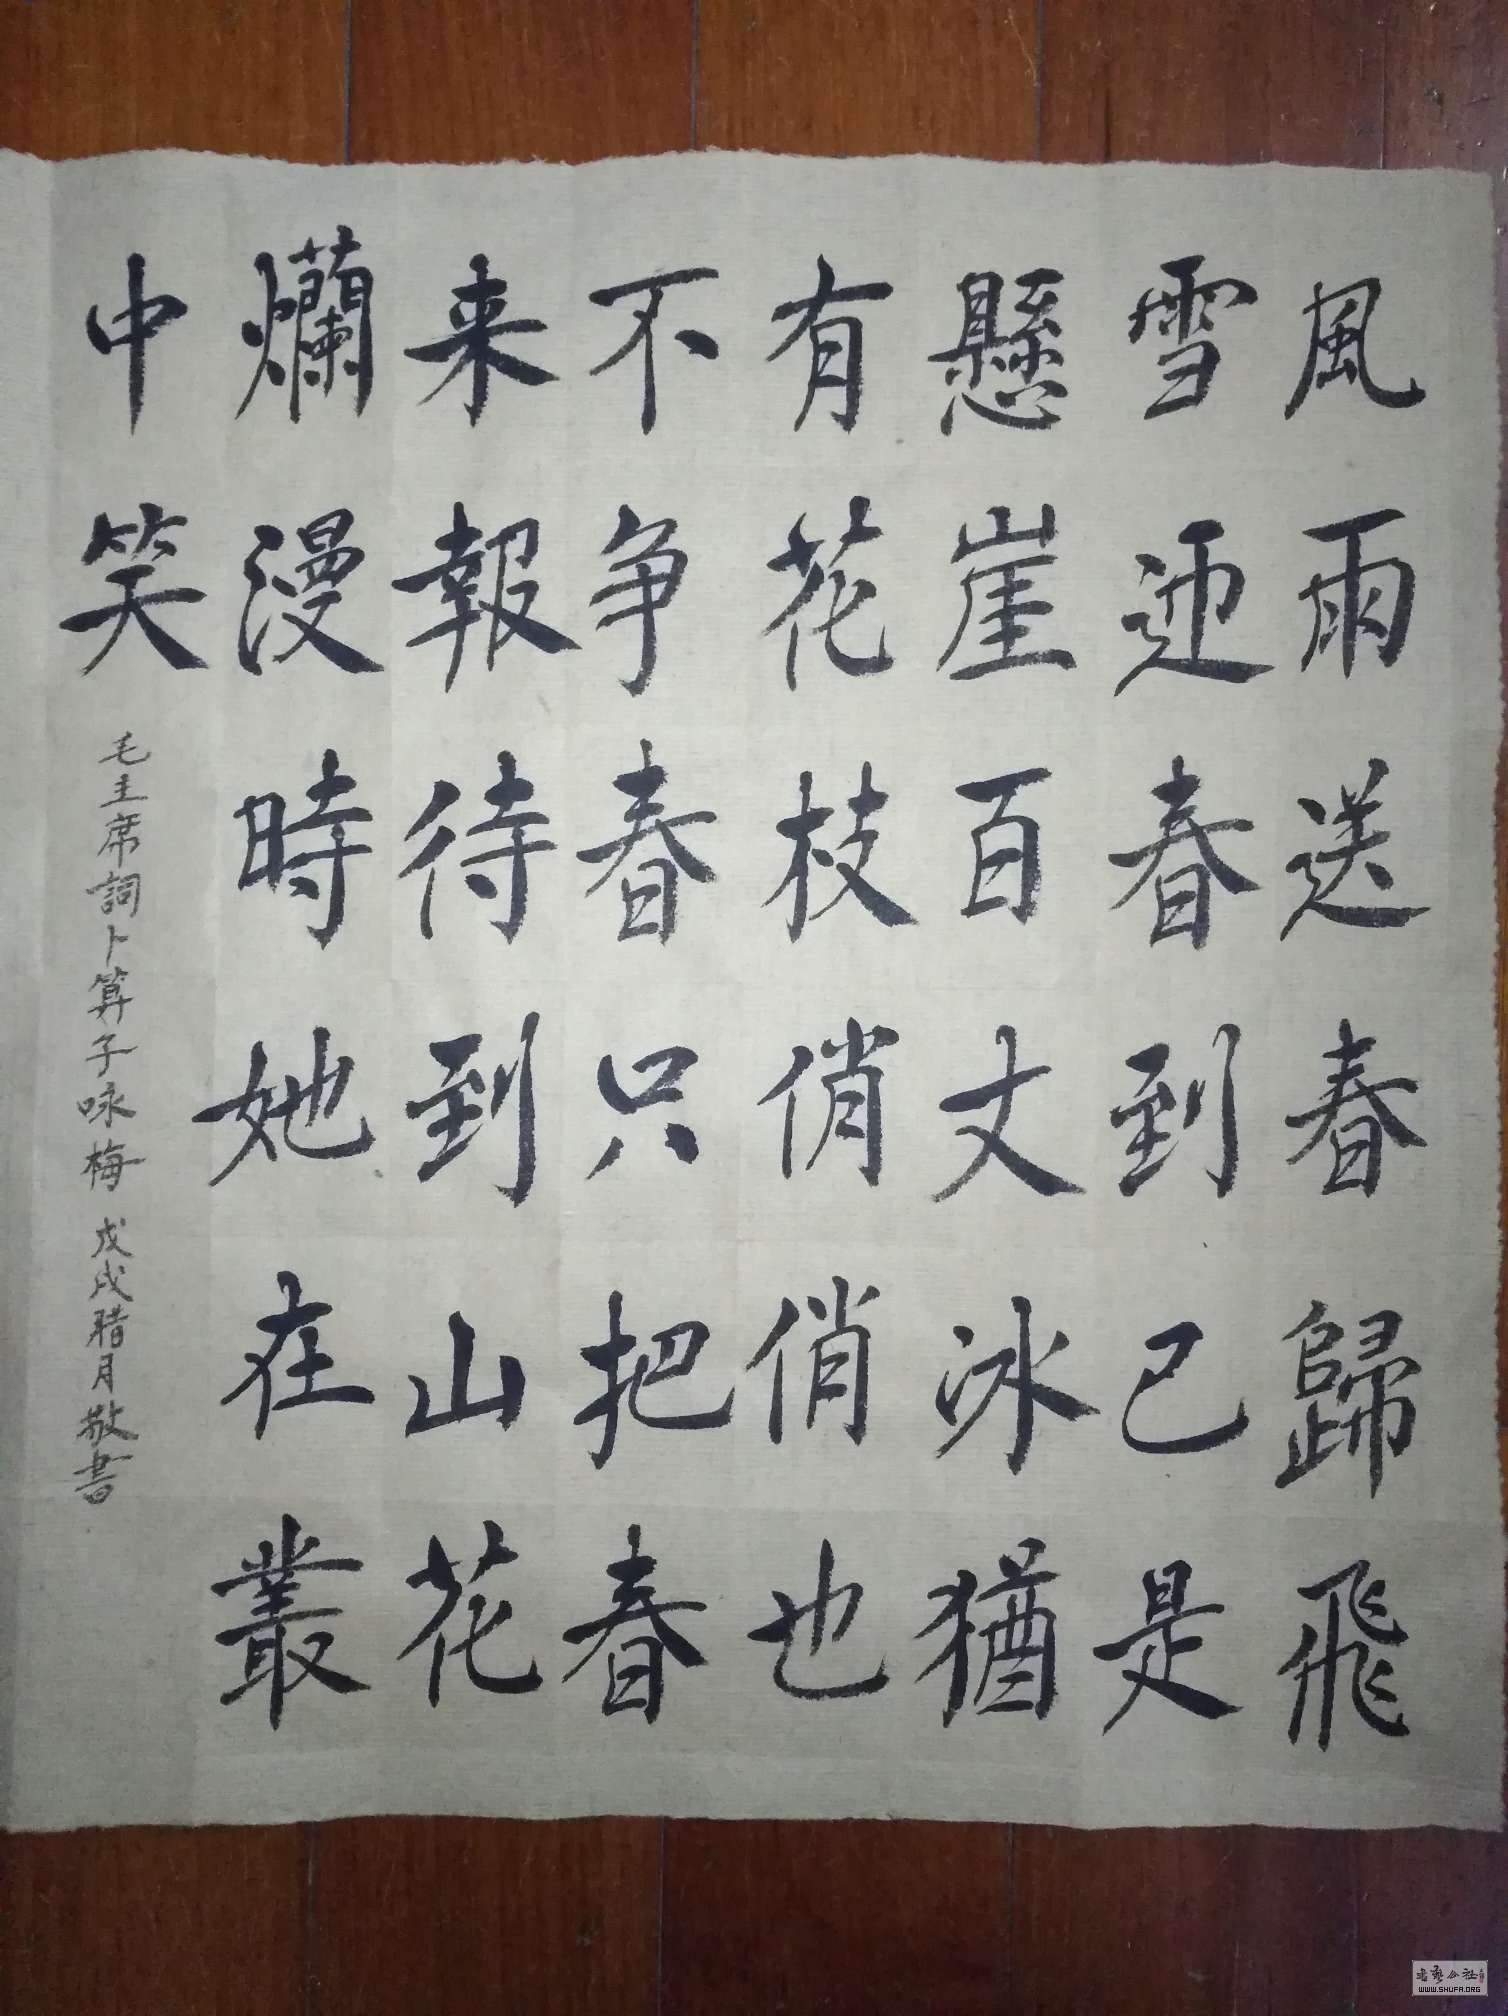 風雨送春歸飛
雪迎春到已是
懸崖百丈冰猶
有花枝俏俏也
不争春只把春
来報待到山花
爛漫時她在叢
中笑
毛主席詞卜算子咏梅 戊戌腊月敬書
書藝公社
WWW.SHUFA.ORG